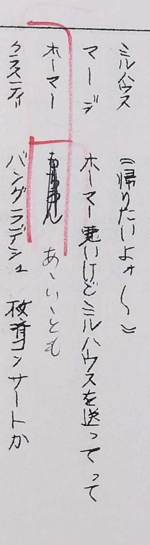 ミルハウス 《帰りたいよォ〜》
マージ ホーマー悪いけどミルハウスを送ってって
ホーマー あゝいゝとも
クラスティ バングラデシュ 救済コンサートか